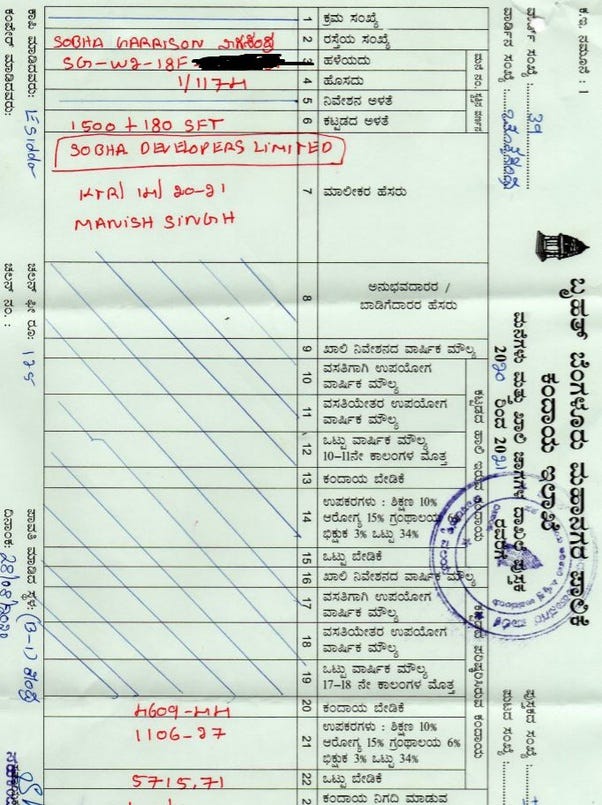 ಕ.ಇ. ನಮೂನೆ : 1
ವಾರ್ಡ್ ಸಂಖ್ಯೆ : 39
ವಾರ್ಡಿನ ಸಂಖ್ಯೆ :
ಬೃಹತ್ ಬೆಂಗಳೂರು ಮಹಾನಗರ ಪಾಲಿಕೆ
ಕಂದಾಯ ಇಲಾಖೆ
ಮನೆಗಳು ಮತ್ತು ಖಾಲಿ ಜಾಗಗಳ ದಾಖಲೆ ಪುಸ್ತಕ
2020 ರಿಂದ 2021 ರವರೆಗೆ
ಪುಸ್ತಕದ ಸಂಖ್ಯೆ :
ಪುಟದ ಸಂಖ್ಯೆ :
1 ಕ್ರಮ ಸಂಖ್ಯೆ
SOBHA GARRISON 2 ರಸ್ತೆಯ ಸಂಖ್ಯೆ
ಮನೆ ನಂ.
SG-W2-18F 3 ಹಳೆಯದು
1/1174 4 ಹೊಸದು
ಸ್ವತ್ತಿನ ವರ್ಣನೆ
5 ನಿವೇಶನ ಅಳತೆ
1500 + 180 SFT 6 ಕಟ್ಟಡದ ಅಳತೆ
SOBHA DEVELOPERS LIMITED
KTR/ 20-21 7 ಮಾಲೀಕರ ಹೆಸರು
MANISH SINGH
8 ಅನುಭವದಾರರ /
ಬಾಡಿಗೆದಾರರ ಹೆಸರು
ಕಟ್ಟಡದ ಹಾಲಿ ಇರುವ ಕಂದಾಯ
9 ಖಾಲಿ ನಿವೇಶನದ ವಾರ್ಷಿಕ ಮೌಲ್ಯ
10 ವಸತಿಗಾಗಿ ಉಪಯೋಗ
ವಾರ್ಷಿಕ ಮೌಲ್ಯ
11 ವಸತಿಯೇತರ ಉಪಯೋಗ
ವಾರ್ಷಿಕ ಮೌಲ್ಯ
12 ಒಟ್ಟು ವಾರ್ಷಿಕ ಮೌಲ್ಯ
10-11ನೇ ಕಾಲಂಗಳ ಮೊತ್ತ
13 ಕಂದಾಯ ಬೇಡಿಕೆ
14 ಉಪಕರಗಳು : ಶಿಕ್ಷಣ 10%
ಆರೋಗ್ಯ 15% ಗ್ರಂಥಾಲಯ 6%
ಭಿಕ್ಷುಕ 3% ಒಟ್ಟು 34%
15 ಒಟ್ಟು ಬೇಡಿಕೆ
16 ಖಾಲಿ ನಿವೇಶನದ ವಾರ್ಷಿಕ ಮೌಲ್ಯ
17 ವಸತಿಗಾಗಿ ಉಪಯೋಗ
ವಾರ್ಷಿಕ ಮೌಲ್ಯ
18 ವಸತಿಯೇತರ ಉಪಯೋಗ
ವಾರ್ಷಿಕ ಮೌಲ್ಯ
19 ಒಟ್ಟು ವಾರ್ಷಿಕ ಮೌಲ್ಯ
17-18 ನೇ ಕಾಲಂಗಳ ಮೊತ್ತ
4609-44 20 ಕಂದಾಯ ಬೇಡಿಕೆ
1106-27 21 ಉಪಕರಗಳು : ಶಿಕ್ಷಣ 10%
ಆರೋಗ್ಯ 15% ಗ್ರಂಥಾಲಯ 6%
ಭಿಕ್ಷುಕ 3% ಒಟ್ಟು 34%
5715.71 22 ಒಟ್ಟು ಬೇಡಿಕೆ
ಕಂದಾಯ ನಿಗದಿ ಮಾಡುವ
ಕಾಪಿ ಮಾಡಿದವರು:
ಕಂಪೇರ್ ಮಾಡಿದವರು:
ಚಲನ್ ಫೀ ರೂ: 175
ಚಲನ್ ನಂ. :
ಪಾವತಿ ಮಾಡಿದ ಸ್ಥಳ: (B-1)
ದಿನಾಂಕ: 28/08/2020